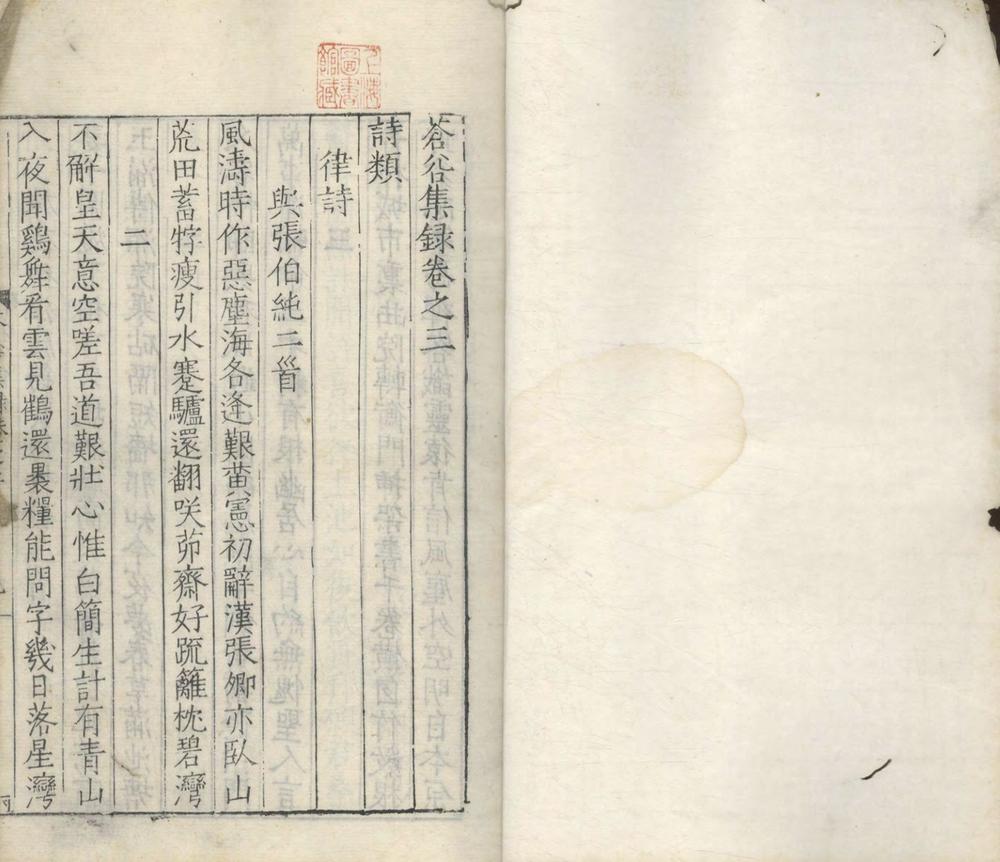 上海
圖書
館藏
蒼谷集録卷之三
詩類
律詩
與張伯純二首
風濤時作惡塵海各逢艱黄憲初辭漢張卿亦臥山
荒田蓄牸瘦引水蹇驢還翻咲茆齋好疏籬枕碧灣
二
不解皇天意空嗟吾道艱壯心惟白簡生計有青山
入夜聞鷄舞看雲見鶴還裹糧能問字幾日落星灣